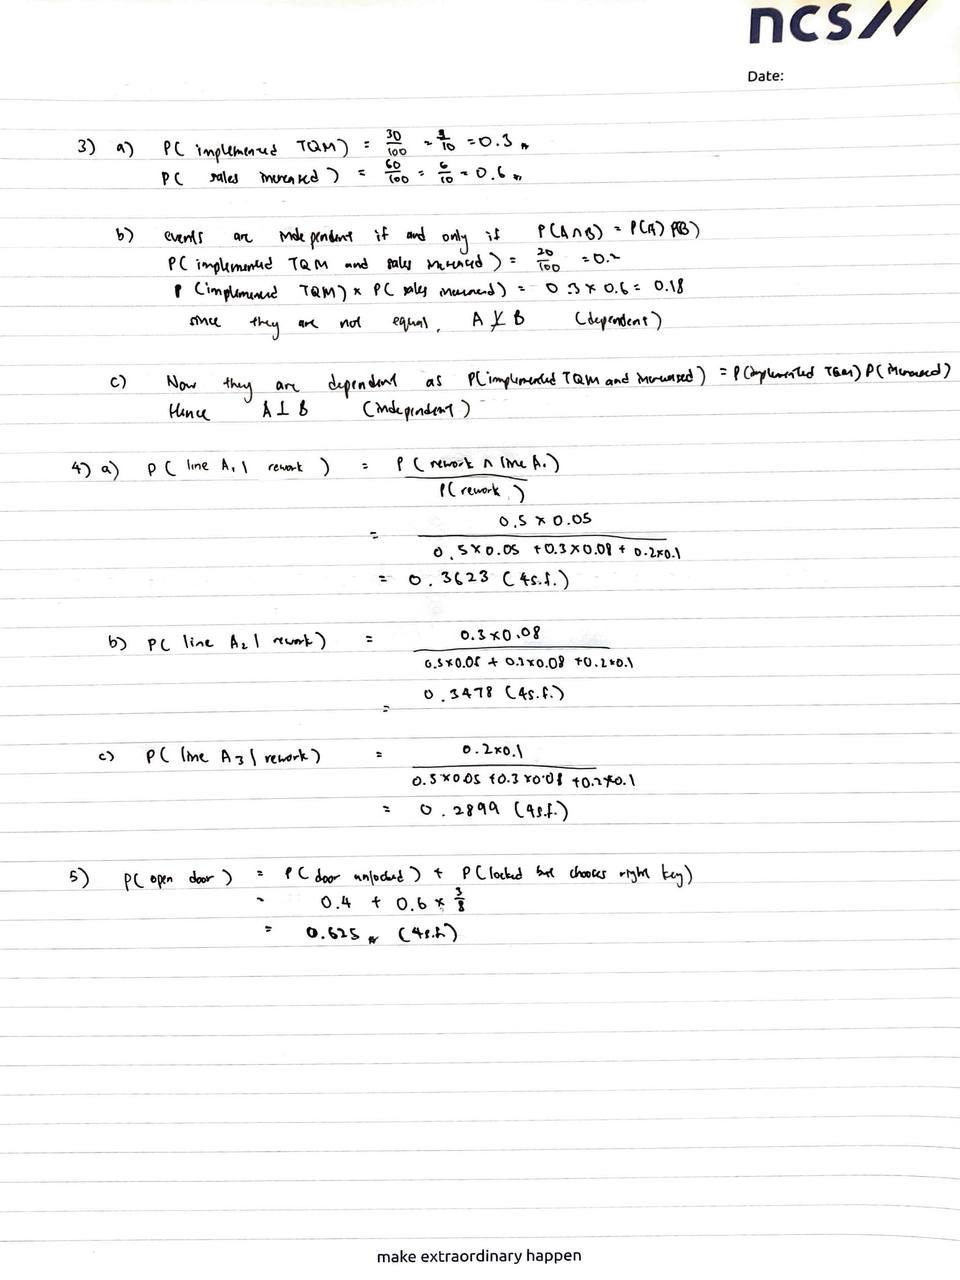 ncs//
Date:
3) a) P( implemented TQM ) = 30/100 = 3/10 = 0.3
P( sales increased ) = 60/100 = 6/10 = 0.6
b) events are independent if and only if P(A∩B) = P(A) P(B)
P( implemented TQM and sales increased ) = 20/100 = 0.2
P (implemented TQM) × P( sales increased ) = 0.3 × 0.6 = 0.18
since they are not equal, A ⊥̸ B (dependent)
c) Now they are dependent as P(implemented TQM and increased) = P(implemented TQM) P(increased)
Hence A ⊥ B (independent)
4) a) P( line A₁ | rework ) = P( rework ∩ line A₁) / P( rework )
= 0.5 × 0.05 / 0.5×0.05 + 0.3×0.08 + 0.2×0.1
= 0.3623 (4s.f.)
b) P( line A₂ | rework) = 0.3×0.08 / 0.5×0.05 + 0.3×0.08 + 0.2×0.1
= 0.3478 (4s.f.)
c) P( line A3 | rework) = 0.2×0.1 / 0.5×0.05 + 0.3×0.08 + 0.2×0.1
= 0.2899 (4s.f.)
5) P( open door ) = P( door unlocked ) + P( locked but chooses right key)
= 0.4 + 0.6 × 3/8
= 0.625 (4s.f.)
make extraordinary happen